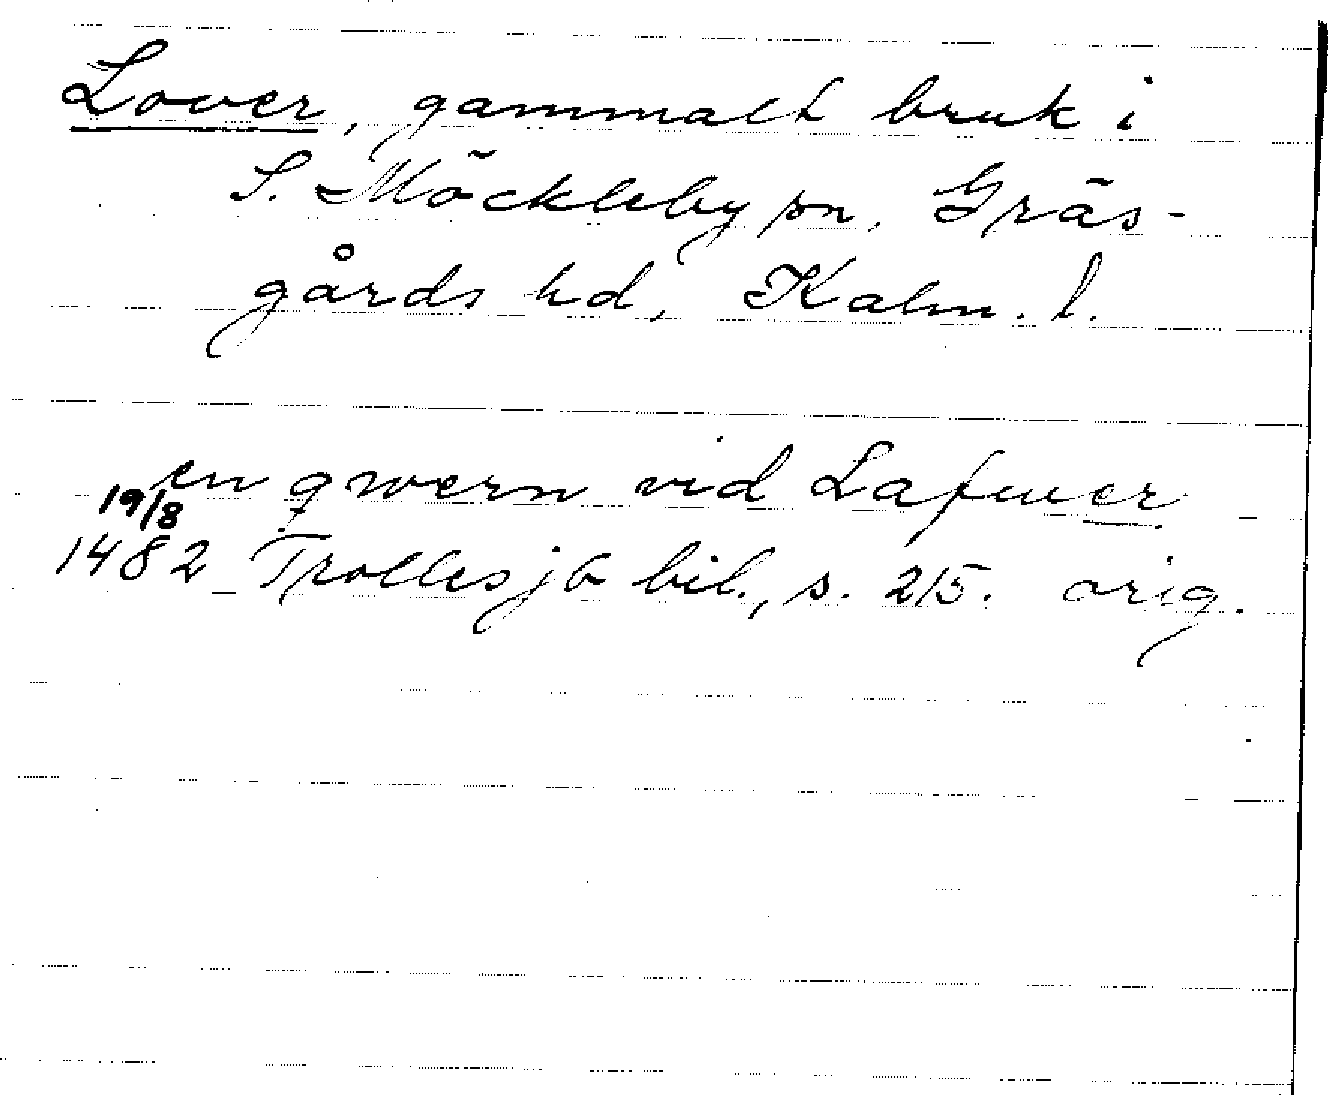 Lover, gammalt bruk i
S. Möckleby sn, Gräs-
gårds hd, Kalm. l.
en qwern vid Lafuer
19/8
1482 Trolles jb bil., s. 215. orig.